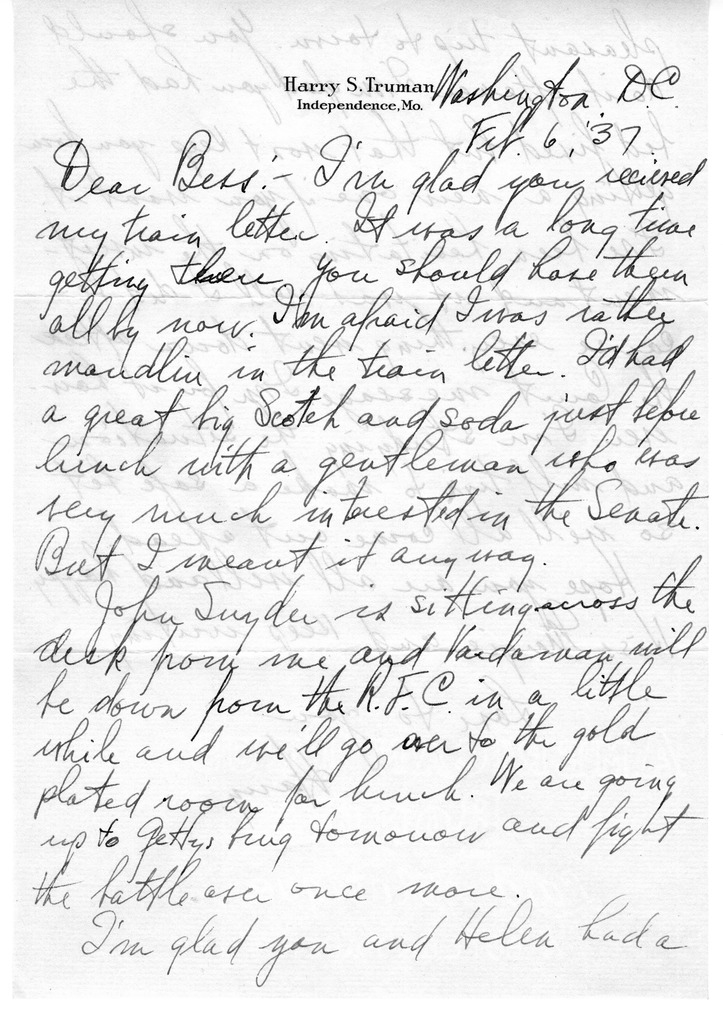 Harry S. Truman
Independence, Mo.
Washington D.C.
Feb. 6, '37.
Dear Bess:- I'm glad you recieved
my train letter. It was a long time
getting there, you should have them
all by now. I'm afraid I was rather
maudlin in the train letter. I'd had
a great big Scotch and soda just before
lunch with a gentleman who was
very much interested in the Senate.
But I meant it anyway.
John Snyder is sitting across the
desk from me and Vardaman will
be down from the R.F.C. in a little
while and we'll go over to the gold
plated room for lunch. We are going
up to Gettysburg tomorrow and fight
the battle over once more.
I'm glad you and Helen had a